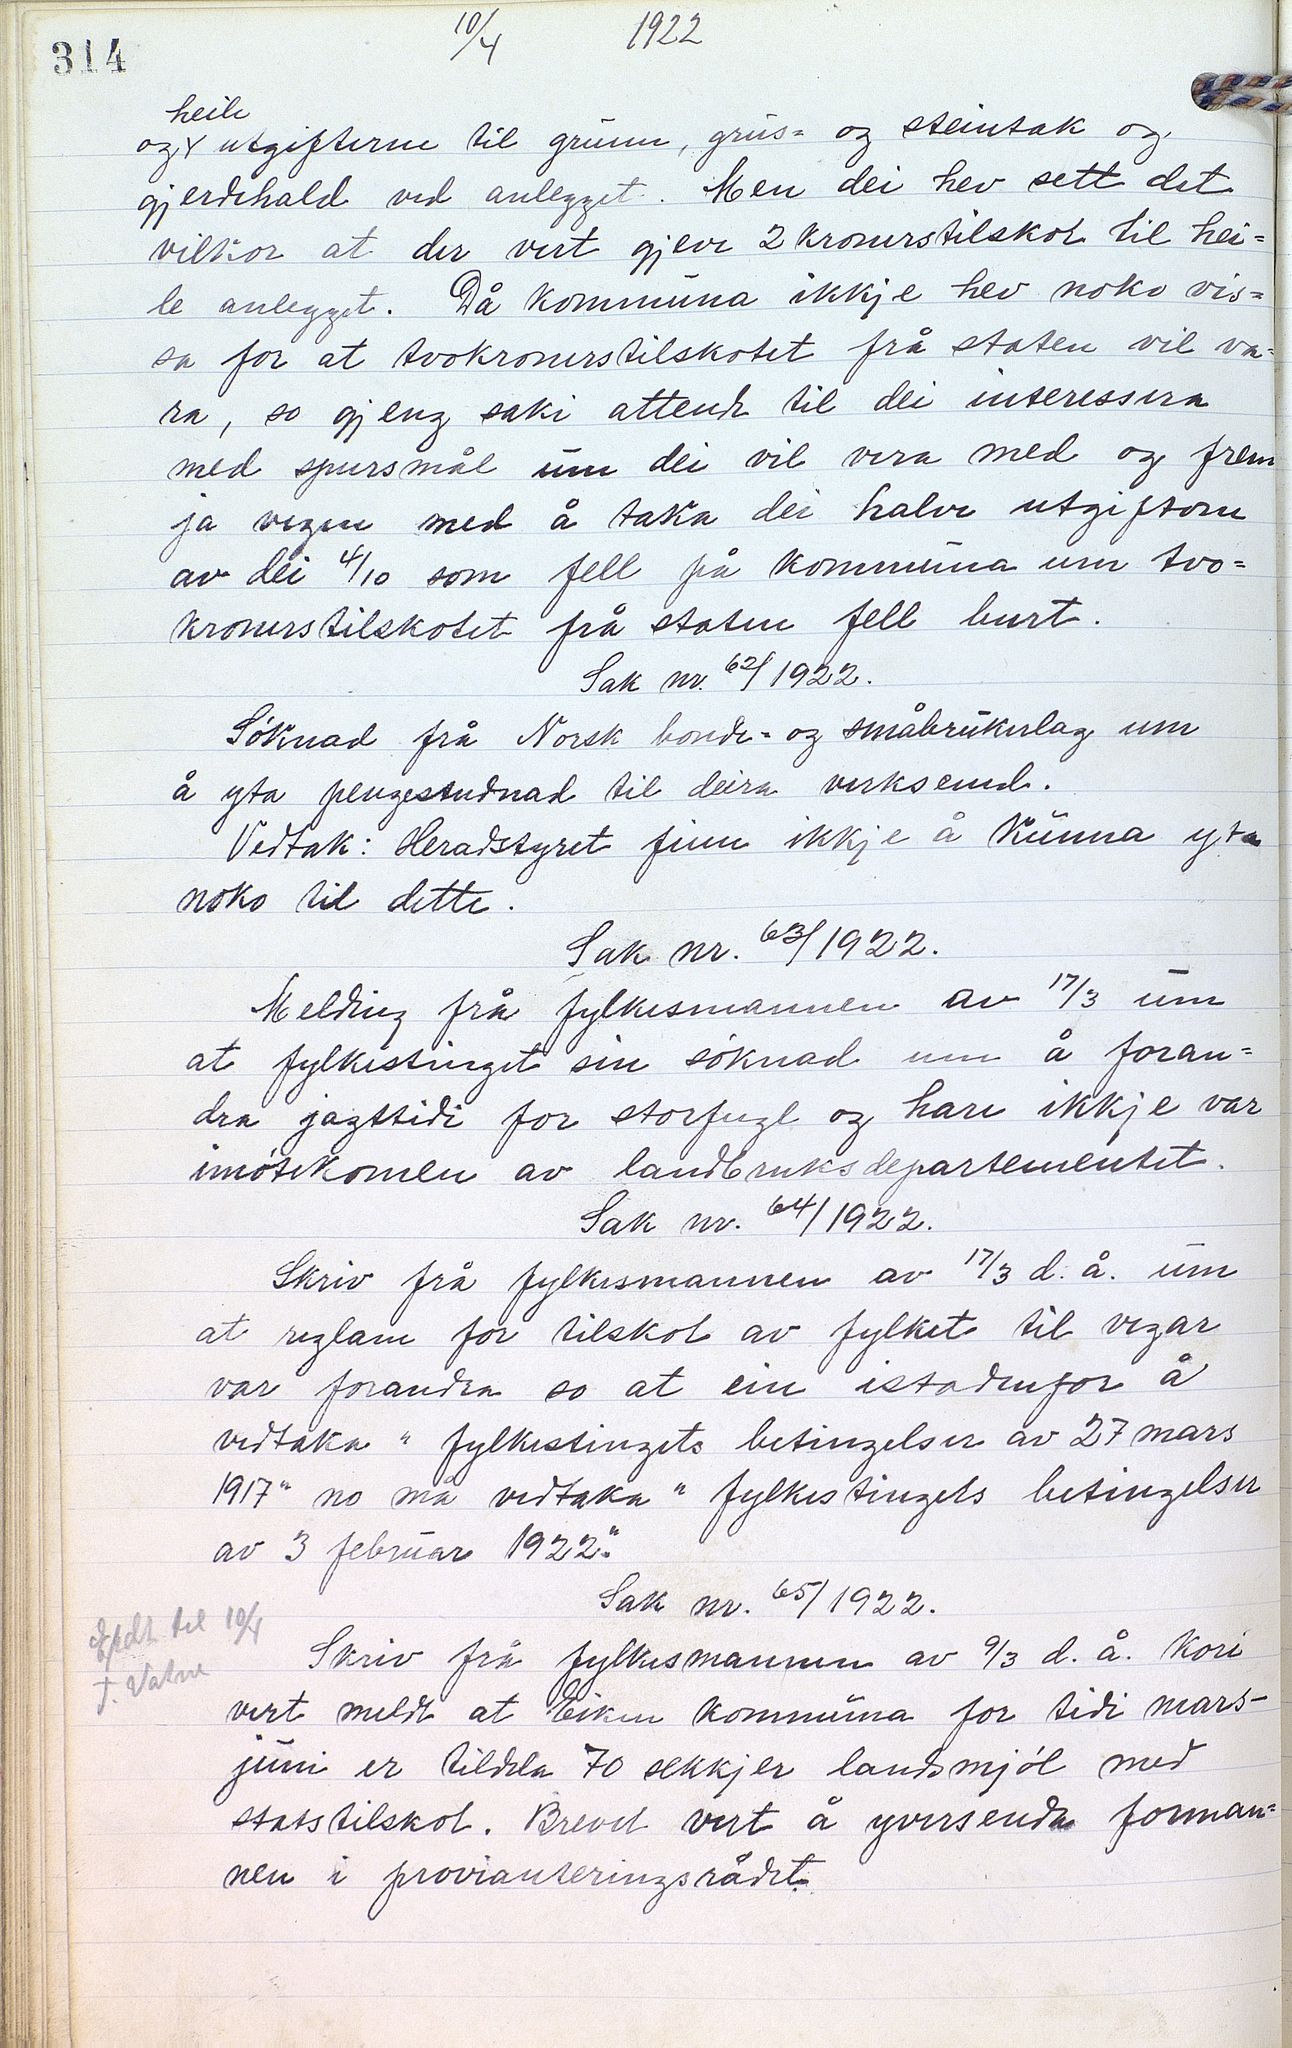 314
10/4 1922
heile
og utgifterne til grunn, grus= og steintak og
gjerdehald ved anlegget. Men dei hev sett det
vilkor at der vert gjeve 2 kronerstilskot til hei=
le anlegget. Då kommuna ikkje hev noko vis=
sa for at tvokronerstilskotet frå staten vil va=
ra, so gjeng saki attende til dei interessera
med spursmål um dei vil vera med og frem
ja vegen med å taka dei halve utgiftom
av dei 4/10 som fell på kommuna um tvo=
kronerstilskotet frå staten fell burt.
Sak nr. 62/1922.
Söknad frå Norsk bonde= og småbrukerlag um
å yta pengestudnad til deira verksemd.
Vedtak: Heradstyret finn ikkje å kunna yta
noko til dette.
Sak nr. 63/1922.
Melding frå fylkesmannen av 17/3 um
at fylkestinget sin söknad um å foran=
dra jagttidi for storfugl og hare ikkje var
imötekomen av landbruksdepartementet.
Sak nr. 64/1922.
Skriv frå fylkesmannen av 17/3 d. å. um
at reglane for tilskot av fylket til vegar
var forandra so at ein istadenfor å
vedtaka "fylkestingets betingelser av 27 mars
1917" no må vedtaka "fylkestingets betingelser
av 3 februar 1922".
Sak nr. 65/1922.
Epdt. til 10/4
Skriv frå fylkesmannen av 9/3 d. å. kori
T. Vatne
vert meldt at Eiken kommuna for tidi mars-
juni er tildela 70 sekkjer landsmjöl med
statstilskot. Brevet vert å yversenda forman=
nen i provianteringsrådet.